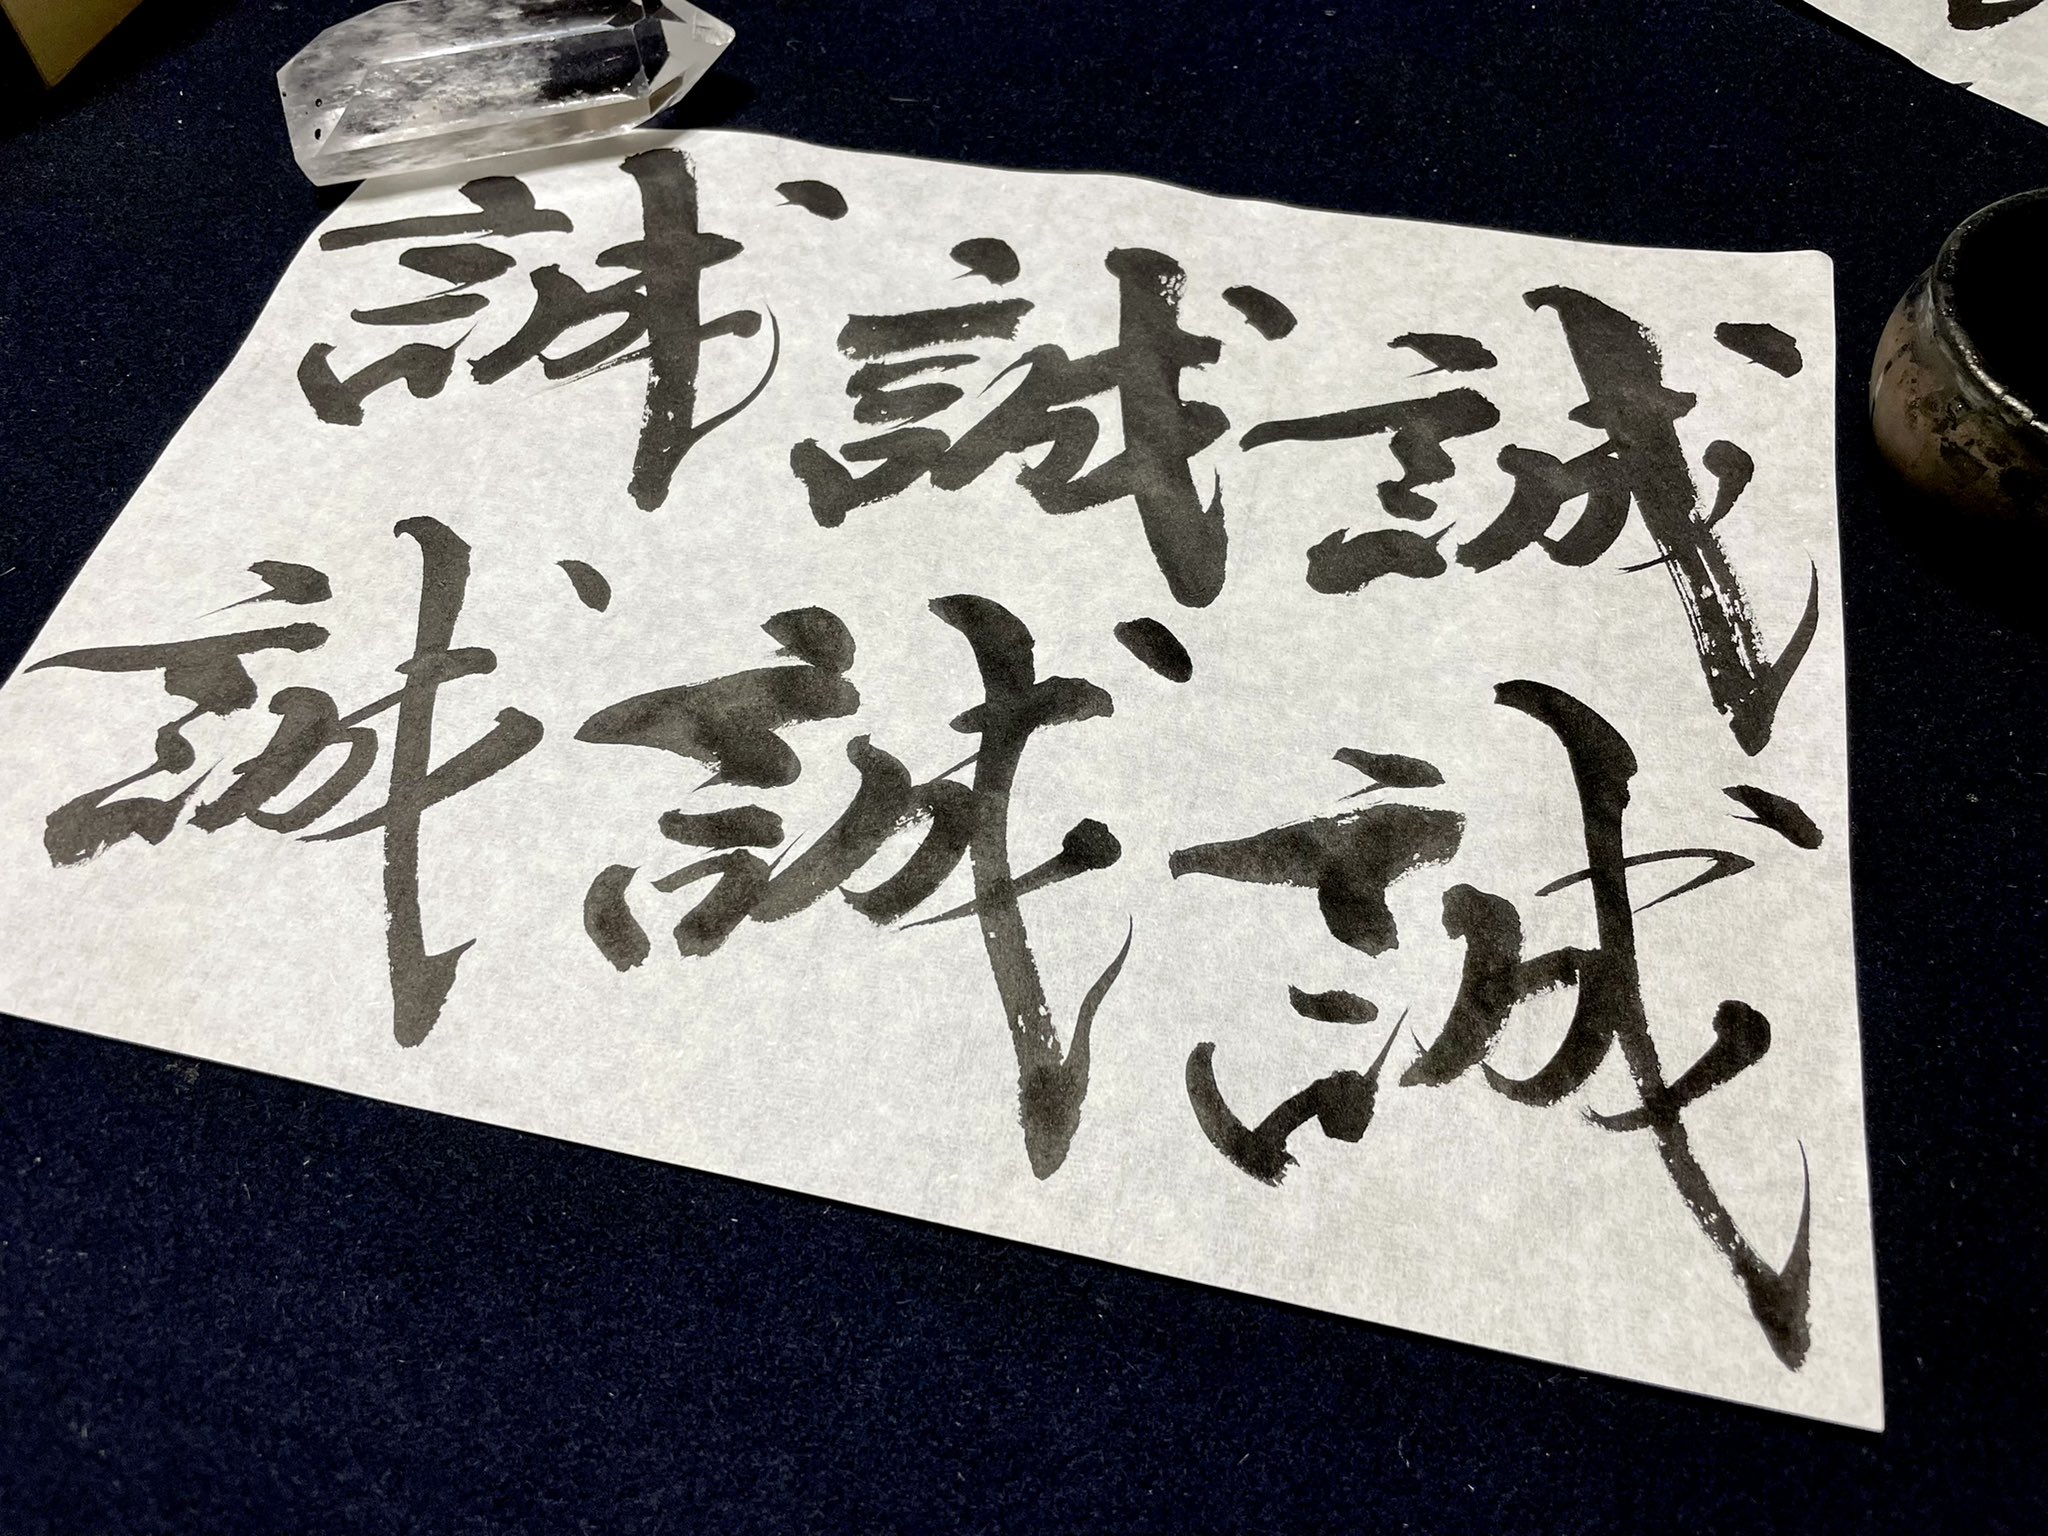 誠誠誠
誠誠誠